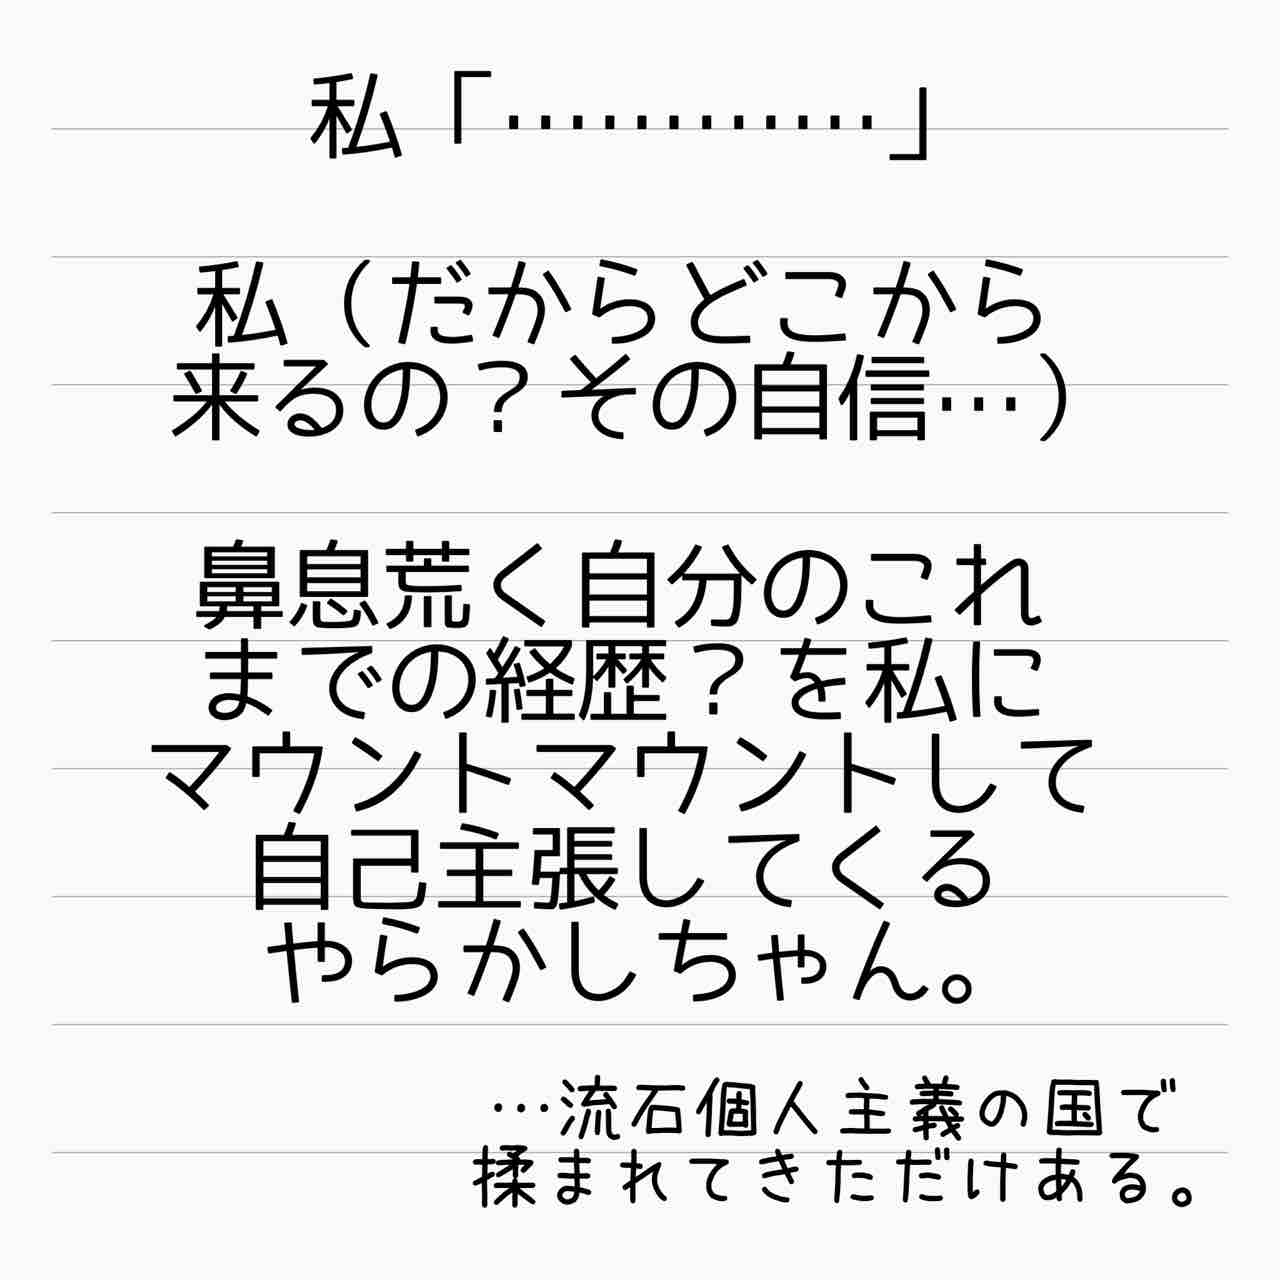 私「…………」
私（だからどこから
来るの？その自信…）
鼻息荒く自分のこれ
までの経歴？を私に
マウントマウントして
自己主張してくる
やらかしちゃん。
…流石個人主義の国で
揉まれてきただけある。